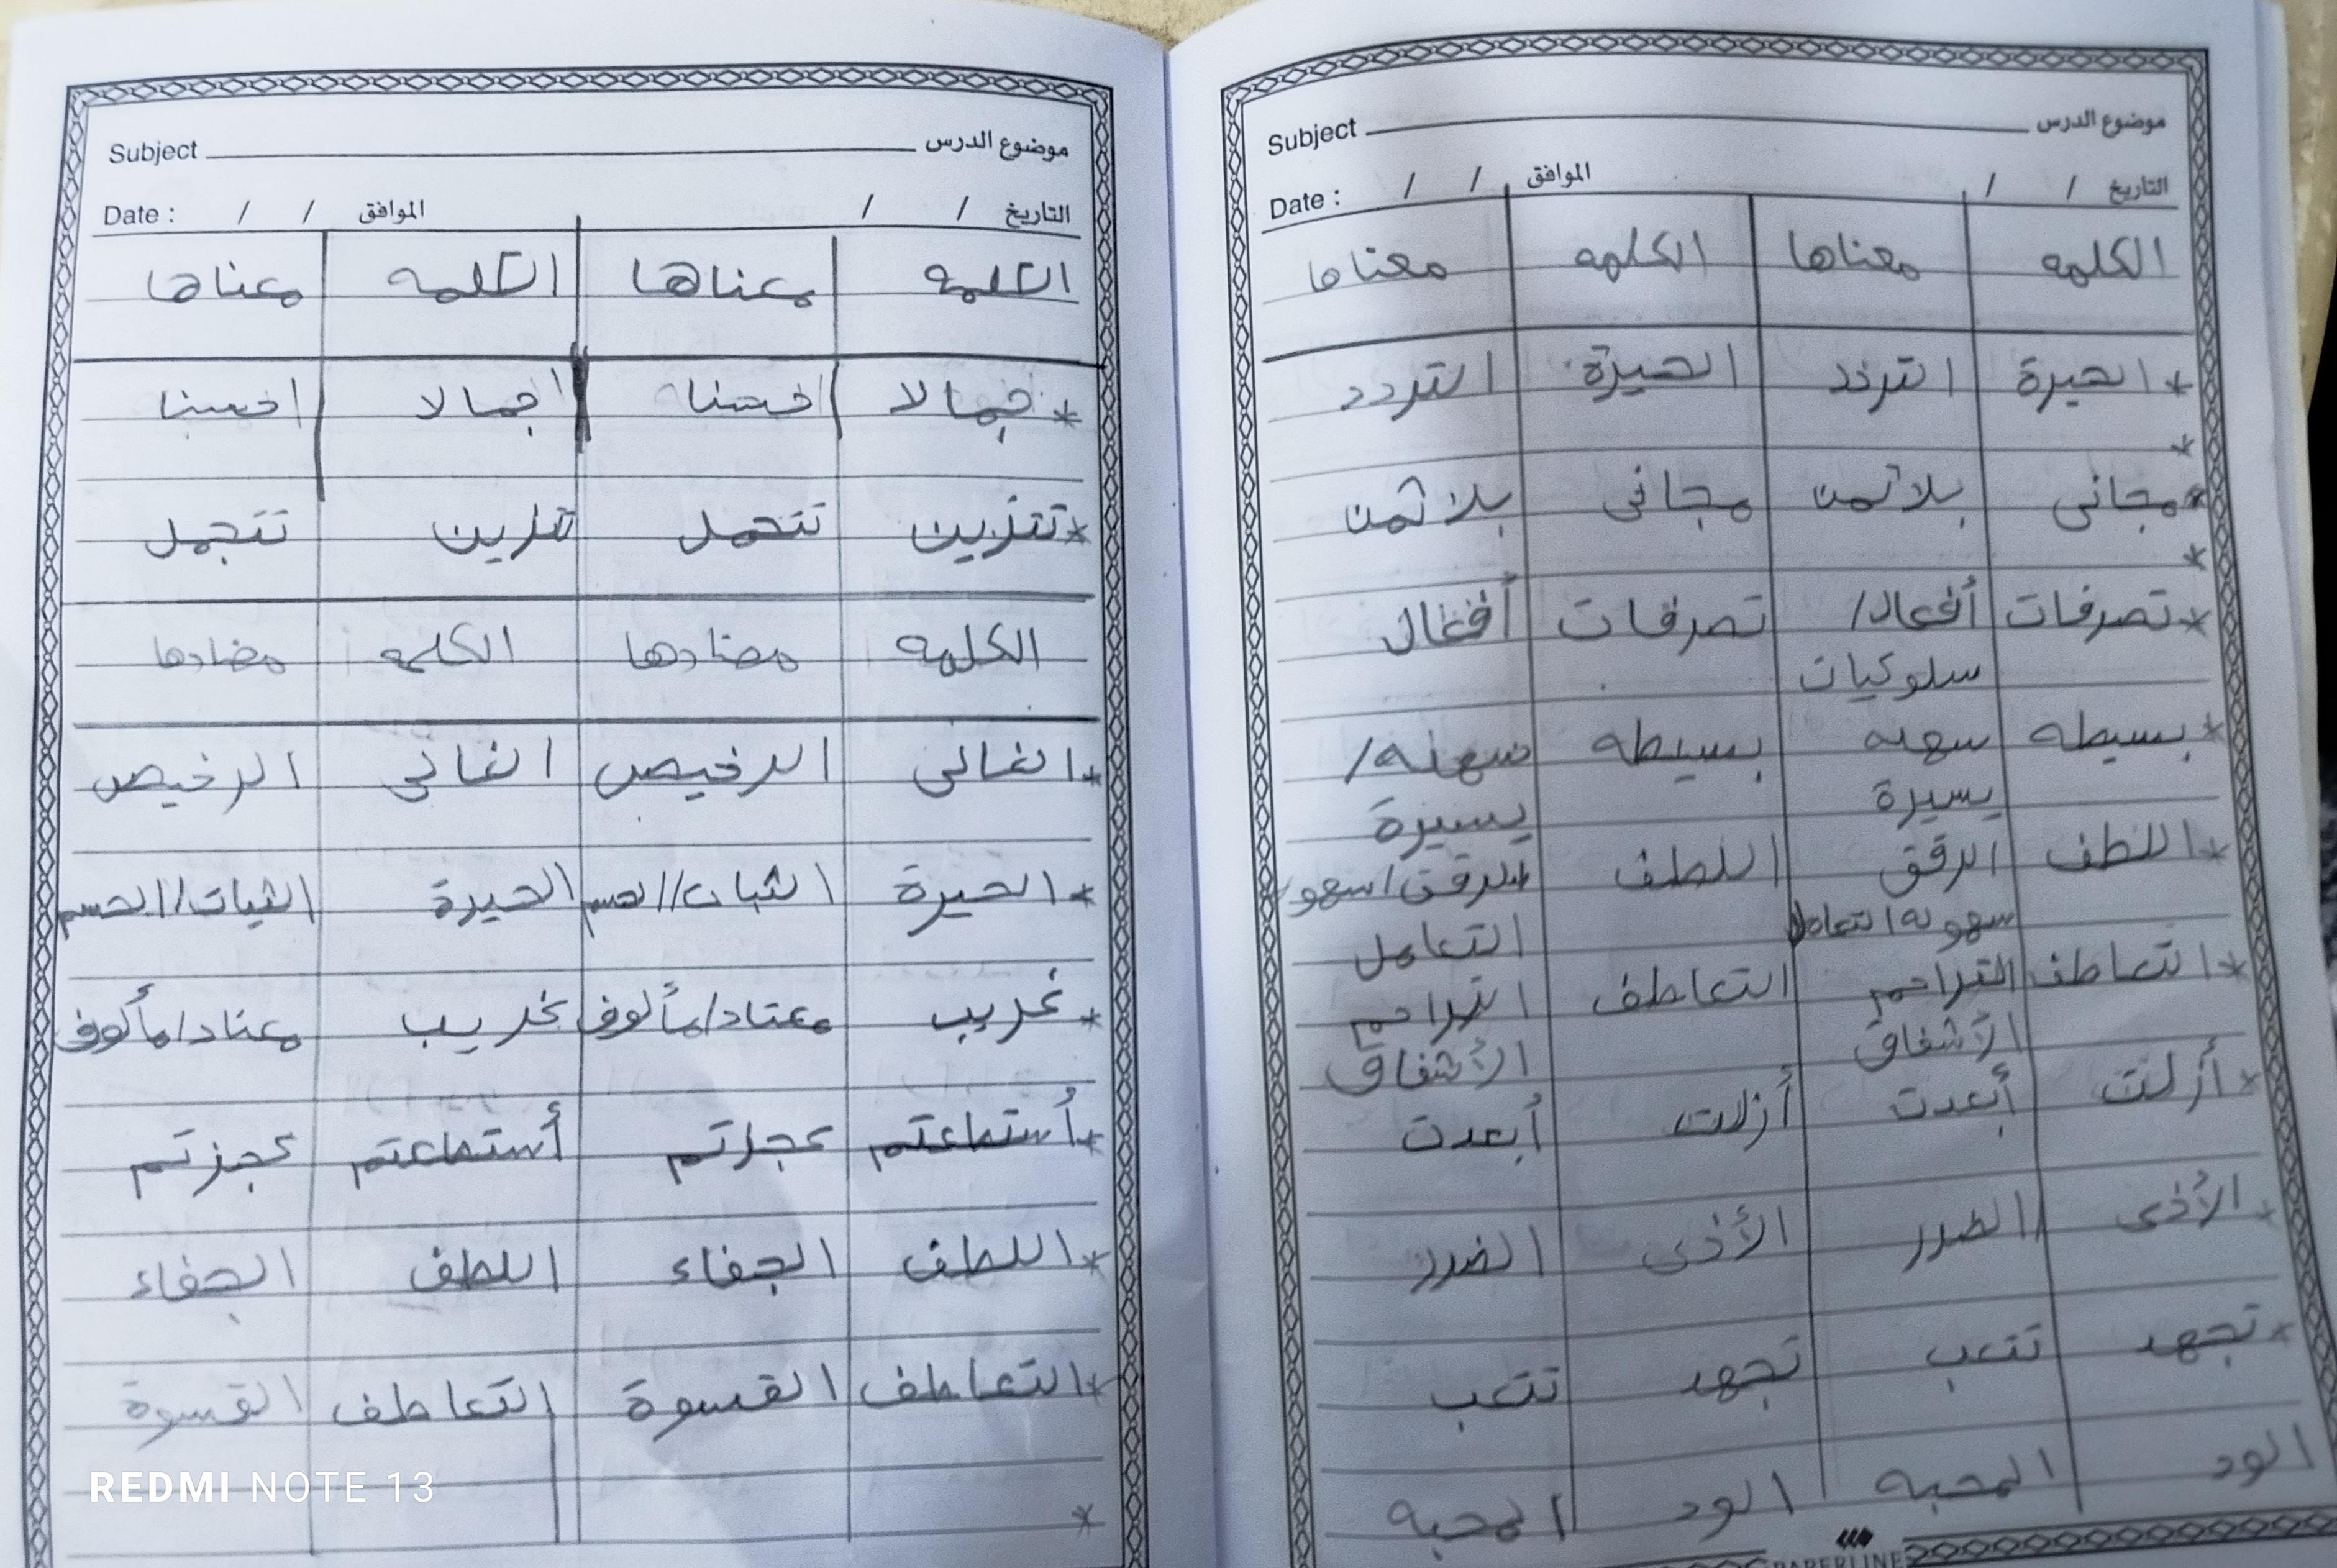 موضوع الدرس Subject
التاريخ / / الموافق / / Date :
الكلمه معناها الكلمه معناها
* الحيرة التردد الحيرة التردد
*
* مجانى بلا ثمن مجانى بلا ثمن
*
* تصرفات أفعال/ تصرفات أفعال
سلوكيات
* بسيطه سهله بسيطه سهله/
يسيرة يسيرة
* اللطف الرقق اللطف الرقق/سهو
سهوله التعامل التعامل
* التعاطف التراحم التعاطف التراحم
الأشفاق الأشفاق
* أزلت أبعدت أزلت أبعدت
* الأذى الضرر الأذى الضرر
* تجهد تتعب تجهد تتعب
الود المحبه الود المحبه
PAPERLINE
موضوع الدرس Subject
التاريخ / / الموافق / / Date :
الكلمه معناها الكلمه معناها
* جمالا حسنا جمالا حسنا
* تتزين تتجمل تتزين تتجمل
الكلمه مضادها الكلمه مضادها
* الغالى الرخيص الغالى الرخيص
* الحيرة الثبات//الحسم الحيرة الثبات//الحسم
* غريب معتاد/مألوف غريب معتاد/مألوف
* أستطاعتم عجزتم أستطاعتم عجزتم
* اللطف الجفاء اللطف الجفاء
* التعاطف القسوة التعاطف القسوة
*
REDMI NOTE 13